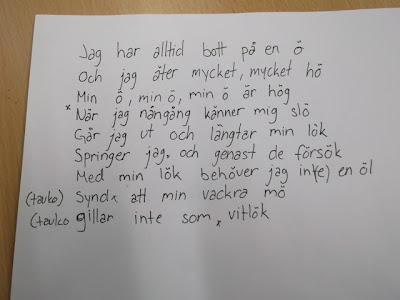 Jag har alltid bott på en ö
Och jag äter mycket, mycket hö
Min ö, min ö, min ö är hög
x När jag nångång känner mig slö
Går jag ut och längtar min lök
Springer jag. och genast de försök
Med min lök behöver jag in(e) en öl
(tauko) Synd x att min vackra mö
(tauko gillar inte som x vitlök